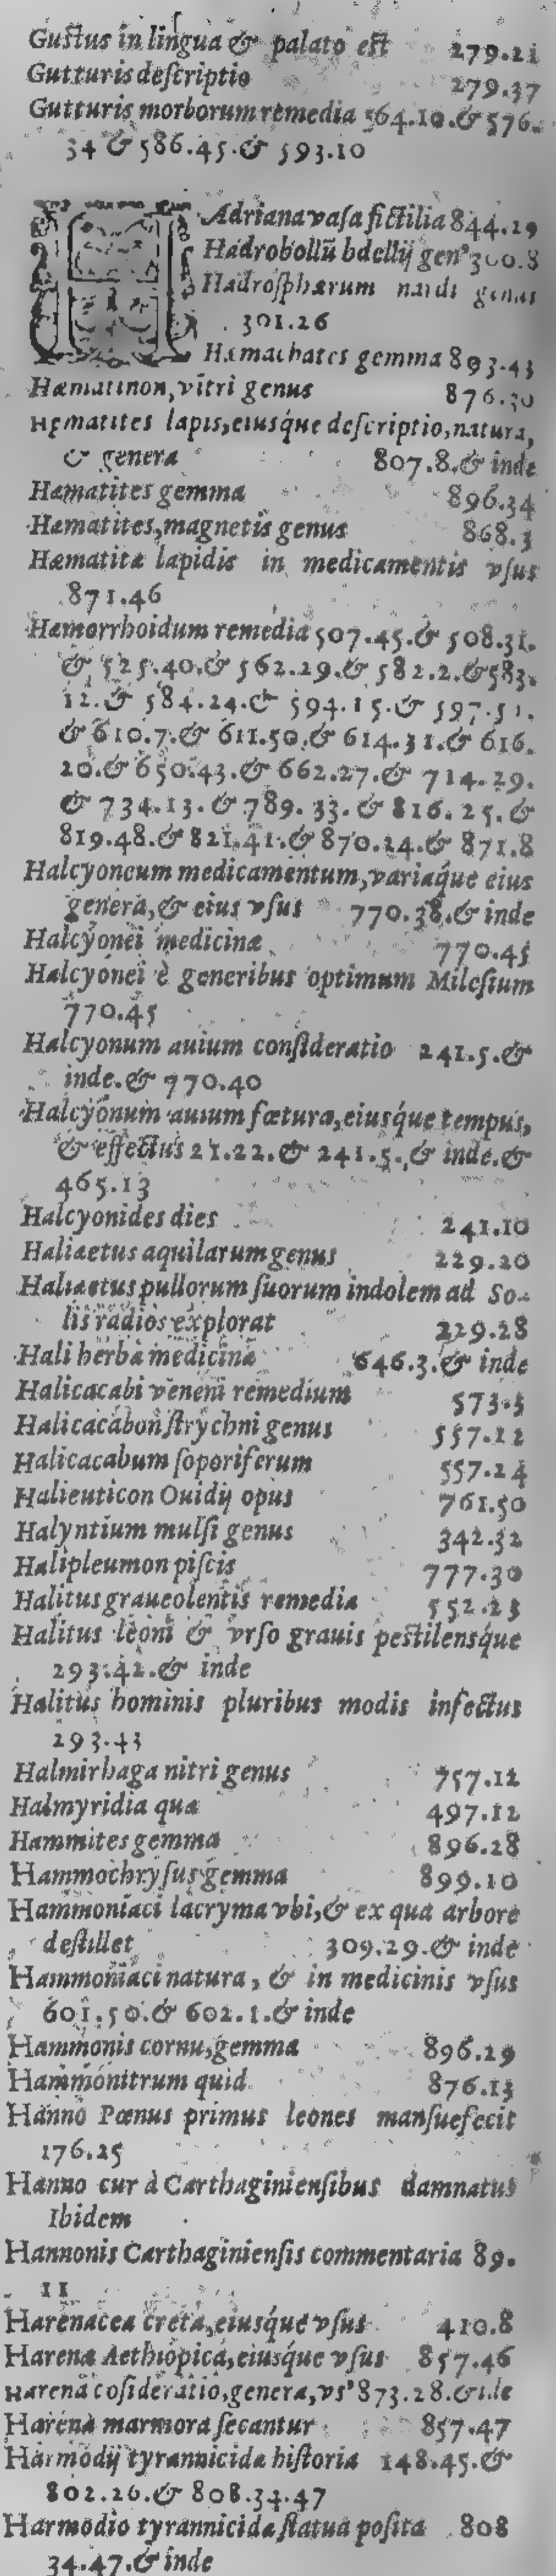 Guſtus in lingua & palato eſt 279.21
Gutturis deſcriptio 279.37
Gutturis morborum remedia 564.10.& 576.
34 & 586.45.& 593.10
HAdriana vaſa fictilia 844.29
Hadrobollū bdellij genꝰ 300.8
Hadroſphærum nardi genus
301.26
Hæmachates gemma 893.43
Hæmatinon, vitri genus 876.30
Hęmatites lapis, eiuśque deſcriptio, natura,
& genera 807.8.& inde
Hæmatites gemma 896.34
Hæmatites, magnetis genus 868.3
Hæmatitæ lapidis in medicamentis vſus
871.46
Hæmorrhoidum remedia 507.45.& 508.31.
& 525.40.& 562.29.& 582.2.& 583.
12.& 584.24.& 594.15.& 597.51.
& 610.7.& 611.50.& 614.31.& 616.
20.& 650.43.& 662.27.& 714.29.
& 734.13.& 789.33.& 816.25.&
819.48.& 821.41.& 870.24.& 871.8
Halcyoneum medicamentum, variáque eius
genera, & eius vſus 770.38.& inde
Halcyonei medicinæ 770.45
Halcyonei è generibus optimum Mileſium
770.45
Halcyonum auium conſideratio 241.5.&
inde.& 770.40
Halcyonum auium fœtura, eiuśque tempus,
& effectus 21.22.& 241.5.,& inde.&
465.13
Halcyonides dies 241.10
Haliæetus aquilarum genus 229.20
Haliæetus pullorum ſuorum indolem ad So-
lis radios explorat 229.28
Hali herba medicinæ 646.3.& inde
Halicacabi veneni remedium 573.5
Halicacabon ſtrychni genus 557.12
Halicacabum ſoporiferum 557.24
Halieuticon Ouidij opus 761.50
Halyntium mulſi genus 342.32
Halipleumon piſcis 777.30
Halitus graueolentis remedia 552.23
Halitus leoni & vrſo grauis peſtilenśque
293.42.& inde
Halitus hominis pluribus modis infectus
293.43
Halmirhaga nitri genus 757.12
Halmyridia quæ 497.12
Hammites gemma 896.28
Hammochryſus gemma 899.10
Hammoniaci lacryma vbi, & ex qua arbore
deſtillet 309.29.& inde
Hammoniaci natura, & in medicinis vſus
601.50.& 602.1.& inde
Hammonis cornu, gemma 896.29
Hammonitrum quid 876.13
Hanno Pœnus primus leones manſuefecit
176.25
Hanno cur à Carthaginienſibus damnatus
Ibidem
Hannonis Carthaginienſis commentaria 89.
11
Harenacea creta, eiuśque vſus 410.8
Harena Aethiopica, eiuśque vſus 857.46
Harenæ cōſideratio, genera, vſꝰ 873.28.& īde
Harena marmora ſecantur 857.47
Harmodij tyrannicidæ hiſtoria 148.45.&
802.26.& 808.34.47
Harmodio tyrannicidæ ſtatua poſita 808
34.47.& inde